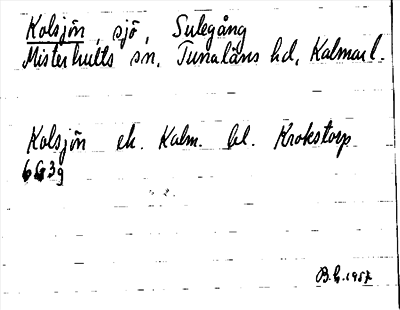 Kolsjön, sjö, Sulegång
Misterhults sn, Tunaläns hd, Kalmar l.
Kolsjön ek. Kalm. bl. Krokstorp
6G39
B.E. 1957